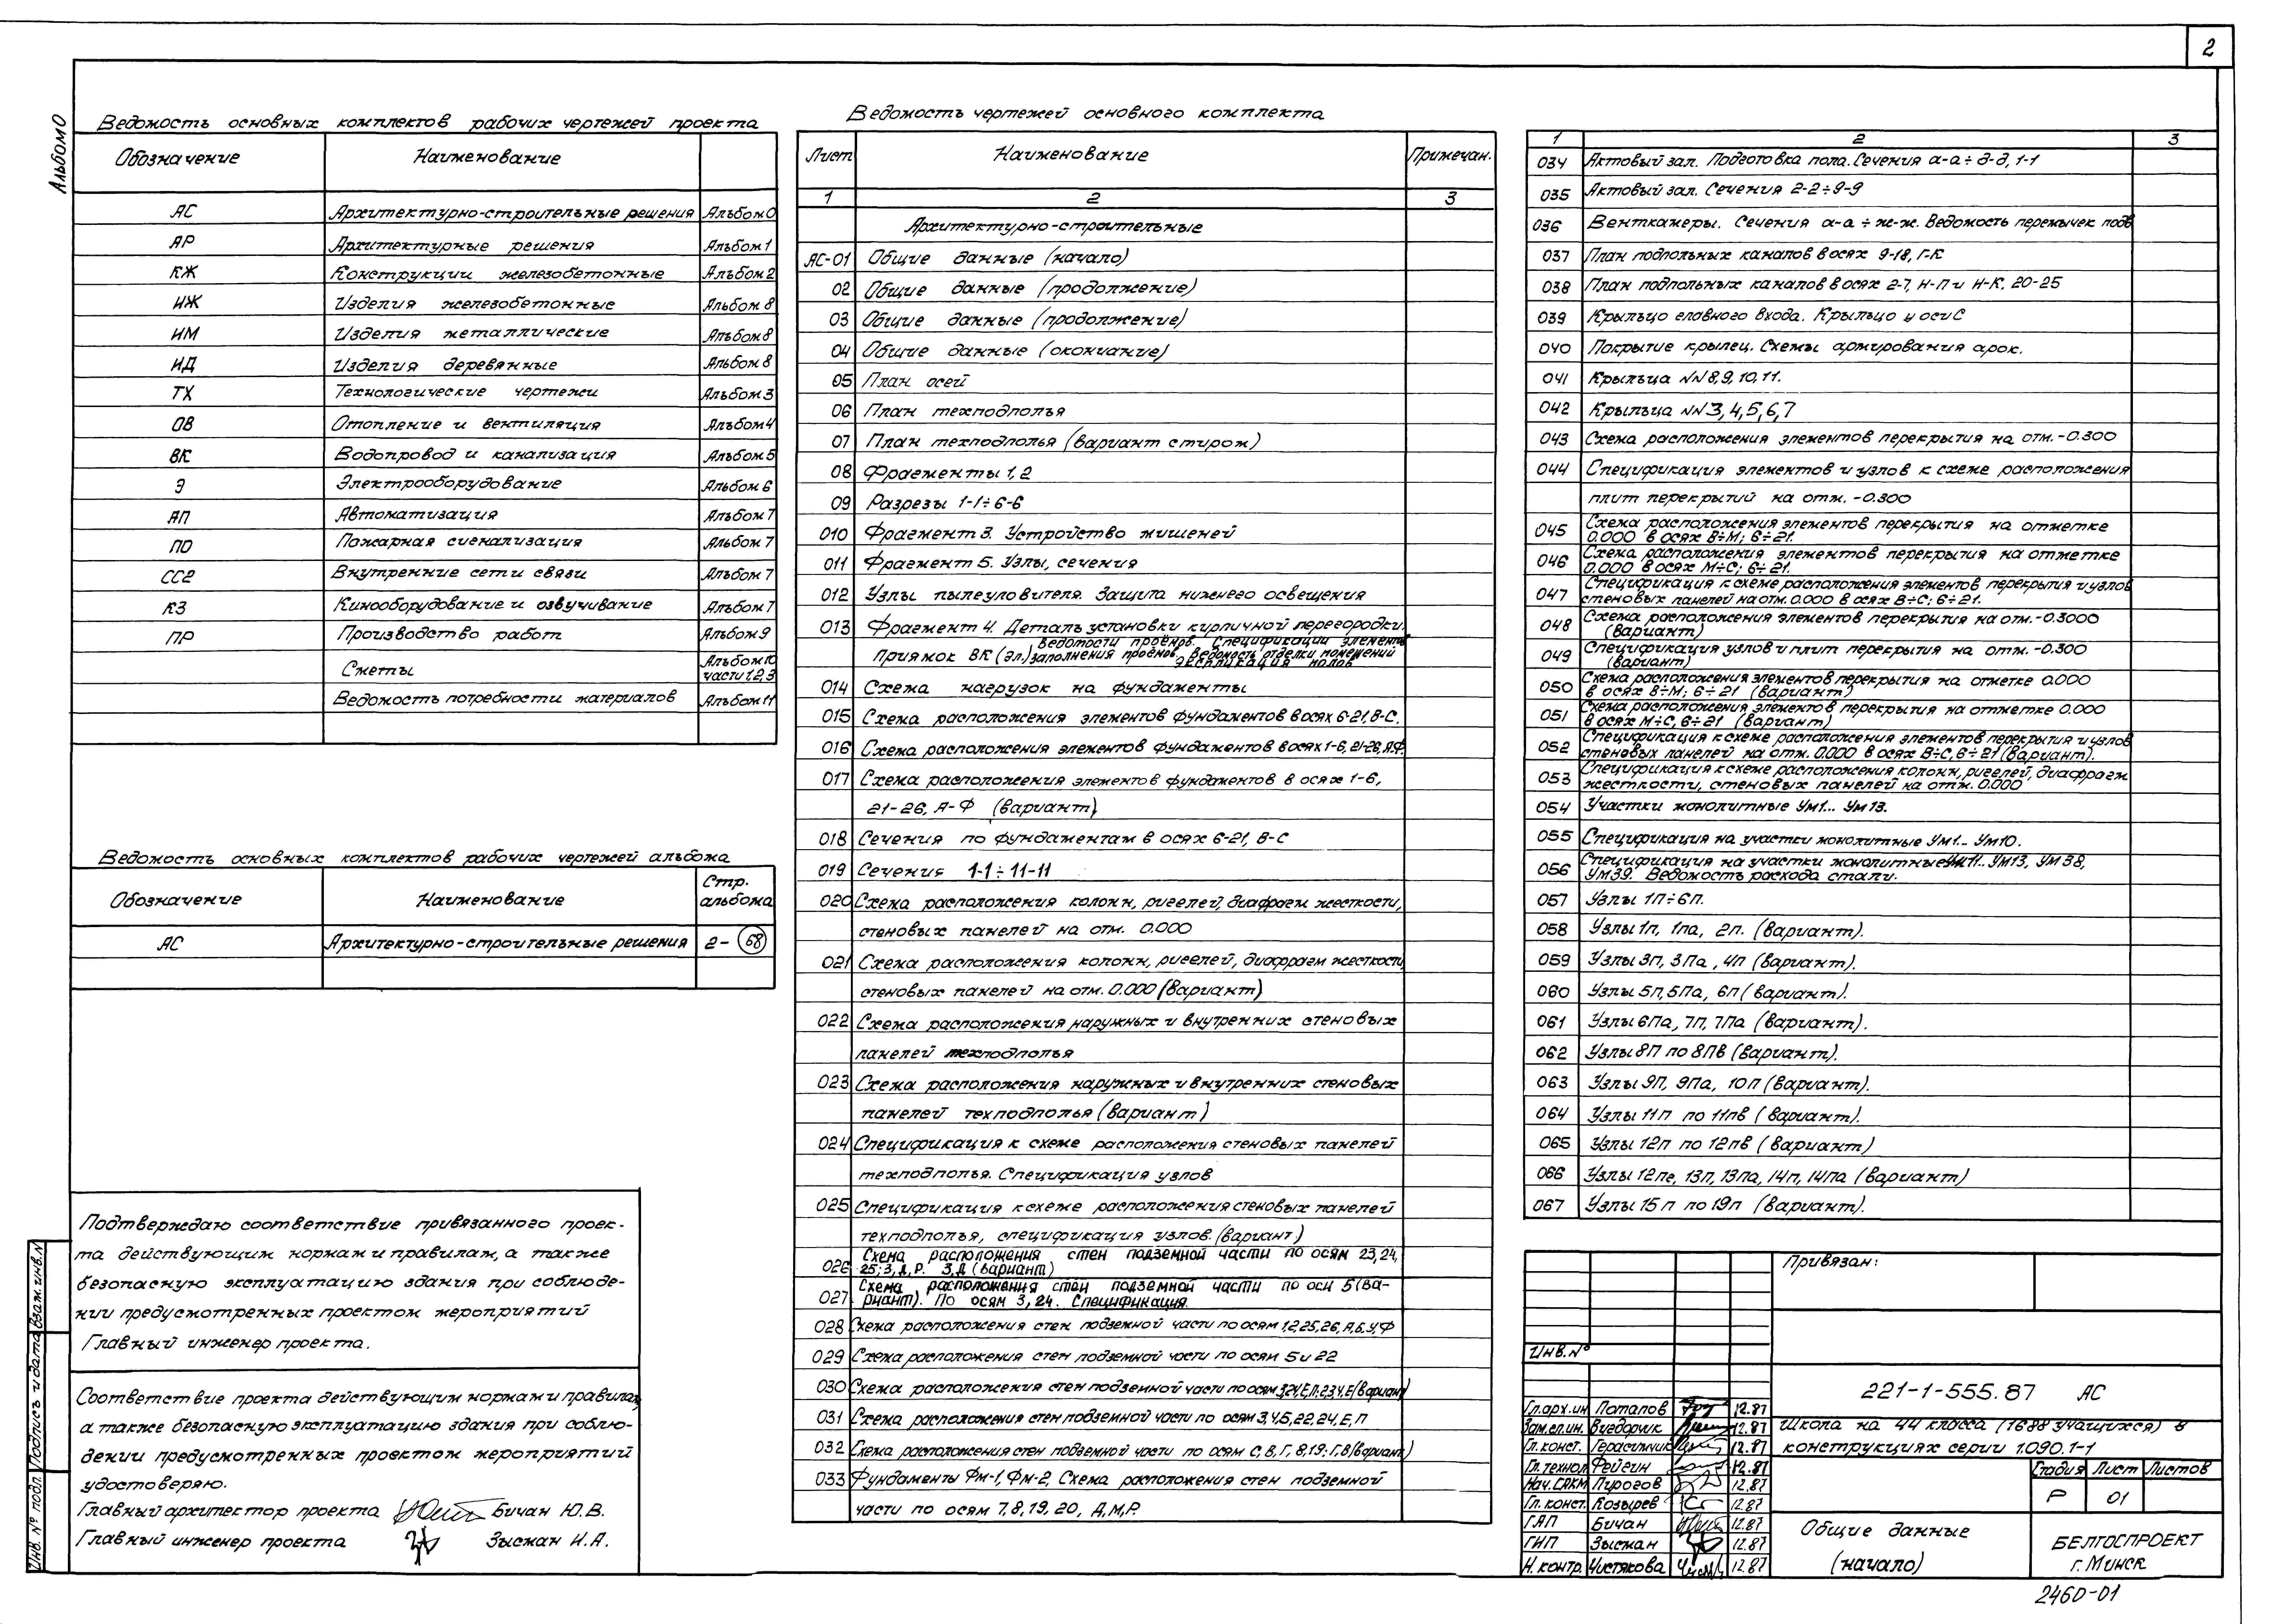 2
Альбом 0
Ведомость основных комплектов рабочих чертежей проекта
Обозначение Наименование
АС Архитектурно-строительные решения Альбом 0
АР Архитектурные решения Альбом 1
КЖ Конструкции железобетонные Альбом 2
ИЖ Изделия железобетонные Альбом 8
ИМ Изделия металлические Альбом 8
ИД Изделия деревянные Альбом 8
ТХ Технологические чертежи Альбом 3
ОВ Отопление и вентиляция Альбом 4
ВК Водопровод и канализация Альбом 5
Э Электрооборудование Альбом 6
АП Автоматизация Альбом 7
ПО Пожарная сигнализация Альбом 7
СС2 Внутренние сети связи Альбом 7
КЗ Кинооборудование и озвучивание Альбом 7
ПР Производство работ Альбом 9
Сметы Альбом 10 части 1,2,3
Ведомость потребности материалов Альбом 11
Ведомость основных комплектов рабочих чертежей альбома
Обозначение Наименование Стр. альбома
АС Архитектурно-строительные решения 2-68
Подтверждаю соответствие привязанного проек-
та действующим нормам и правилам, а также
безопасную эксплуатацию здания при соблюде-
нии предусмотренных проектом мероприятий
Главный инженер проекта.
Соответствие проекта действующим нормам и правилам,
а также безопасную эксплуатацию здания при соблю-
дении предусмотренных проектом мероприятий
удостоверяю.
Главный архитектор проекта Бичан Ю.В.
Главный инженер проекта Зысман И.А.
Инв. № подл. Подпись и дата Взам. инв. №
Ведомость чертежей основного комплекта
Лист Наименование Примечан.
1 2 3
Архитектурно-строительные
АС-01 Общие данные (начало)
02 Общие данные (продолжение)
03 Общие данные (продолжение)
04 Общие данные (окончание)
05 План осей
06 План техподполья
07 План техподполья (вариант с тиром)
08 Фрагменты 1, 2
09 Разрезы 1-1÷6-6
010 Фрагмент 3. Устройство мишеней
011 Фрагмент 5. Узлы, сечения
012 Узлы пылеуловителя. Защита нижнего освещения
013 Фрагмент 4. Деталь установки кирпичной перегородки.
Приямок ВК (эл.) Ведомости проёмов. Спецификации элементов
заполнения проёмов. Ведомость отделки помещений
Экспликация полов
014 Схема нагрузок на фундаменты
015 Схема расположения элементов фундаментов в осях 6-21, В-С.
016 Схема расположения элементов фундаментов в осях 1-6, 21-26, А-Ф.
017 Схема расположения элементов фундаментов в осях 1-6,
21-26, А-Ф (вариант)
018 Сечения по фундаментам в осях 6-21, В-С
019 Сечения 1-1÷11-11
020 Схема расположения колонн, ригелей, диафрагм жесткости,
стеновых панелей на отм. 0.000
021 Схема расположения колонн, ригелей, диафрагм жесткости,
стеновых панелей на отм. 0.000 (вариант)
022 Схема расположения наружных и внутренних стеновых
панелей техподполья
023 Схема расположения наружных и внутренних стеновых
панелей техподполья (вариант)
024 Спецификация к схеме расположения стеновых панелей
техподполья. Спецификация узлов
025 Спецификация к схеме расположения стеновых панелей
техподполья, спецификация узлов. (вариант)
026 Схема расположения стен подземной части по осям 23, 24,
25; 3, Д, Р. 3, Д (вариант)
027 Схема расположения стен подземной части по оси 5 (ва-
риант). По осям 3, 24. Спецификация.
028 Схема расположения стен подземной части по осям 1,2,25,26, А,Б,У,Ф
029 Схема расположения стен подземной части по осям 5 и 22
030 Схема расположения стен подземной части по осям (вариант)
031 Схема расположения стен подземной части по осям 3,4,5,22,24, Е, П
032 Схема расположения стен подземной части по осям С, В, Г, 8,19; Г,8 (вариант)
033 Фундаменты Фм-1, Фм-2, Схема расположения стен подземной
части по осям 7, 8, 19, 20, Д, М, Р.
1 2 3
034 Актовый зал. Подготовка пола. Сечения а-а÷д-д, 1-1
035 Актовый зал. Сечения 2-2÷9-9
036 Венткамеры. Сечения а-а÷ж-ж. Ведомость перемычек подв
037 План подпольных каналов в осях 9-18, Г-К
038 План подпольных каналов в осях 2-7, Н-П и Н-К, 20-25
039 Крыльцо главного входа. Крыльцо у оси С
040 Покрытие крылец. Схемы армирования арок.
041 Крыльца NN 8, 9, 10, 11.
042 Крыльца NN 3, 4, 5, 6, 7
043 Схема расположения элементов перекрытия на отм. -0.300
044 Спецификация элементов и узлов к схеме расположения
плит перекрытий на отм. -0.300
045 Схема расположения элементов перекрытия на отметке
0.000 в осях В÷М; 6÷21.
046 Схема расположения элементов перекрытия на отметке
0.000 в осях М÷С; 6÷21.
047 Спецификация к схеме расположения элементов перекрытия и узлов
стеновых панелей на отм. 0.000 в осях В÷С; 6÷21.
048 Схема расположения элементов перекрытия на отм. -0.3000
(вариант)
049 Спецификация узлов и плит перекрытия на отм. -0.300
(вариант)
050 Схема расположения элементов перекрытия на отметке 0.000
в осях В÷М; 6÷21 (вариант)
051 Схема расположения элементов перекрытия на отметке 0.000
в осях М÷С, 6÷21 (вариант)
052 Спецификация к схеме расположения элементов перекрытия и узлов
стеновых панелей на отм. 0.000 в осях В÷С, 6÷21 (вариант).
053 Спецификация к схеме расположения колонн, ригелей, диафрагм
жесткости, стеновых панелей на отм. 0.000
054 Участки монолитные Ум1... Ум13.
055 Спецификация на участки монолитные Ум1... Ум10.
056 Спецификация на участки монолитные Ум11... Ум13, Ум38,
Ум39. Ведомость расхода стали.
057 Узлы 1п÷6п.
058 Узлы 1п, 1па, 2п. (вариант).
059 Узлы 3п, 3Па, 4п (вариант).
060 Узлы 5п, 5Па, 6п (вариант).
061 Узлы 6Па, 7П, 7Па (вариант).
062 Узлы 8П по 8Пв (вариант).
063 Узлы 9П, 9Па, 10п (вариант).
064 Узлы 11п по 11пв (вариант).
065 Узлы 12п по 12пв (вариант)
066 Узлы 12пг, 13п, 13па, 14п, 14па (вариант)
067 Узлы 15п по 19п (вариант).
Привязан:
Инв. №
221-1-555.87 АС
Гл.арх.ин Потапов 12.87
Зам.гл.ин. 12.87
Гл. конст. Герасимчик 12.87
Гл. технол Фейгин 12.87
Нач. САКМ Пирогов 12.87
Гл. конст. Козырев 12.87
ГАП Бичан 12.87
ГИП Зысман 12.87
Н. контр. Чистякова 12.87
Школа на 44 класса (1688 учащихся) в
конструкциях серии 1.090.1-1
Стадия Лист Листов
Р 01
Общие данные
(начало)
БЕЛГОСПРОЕКТ
г. Минск
2460-01